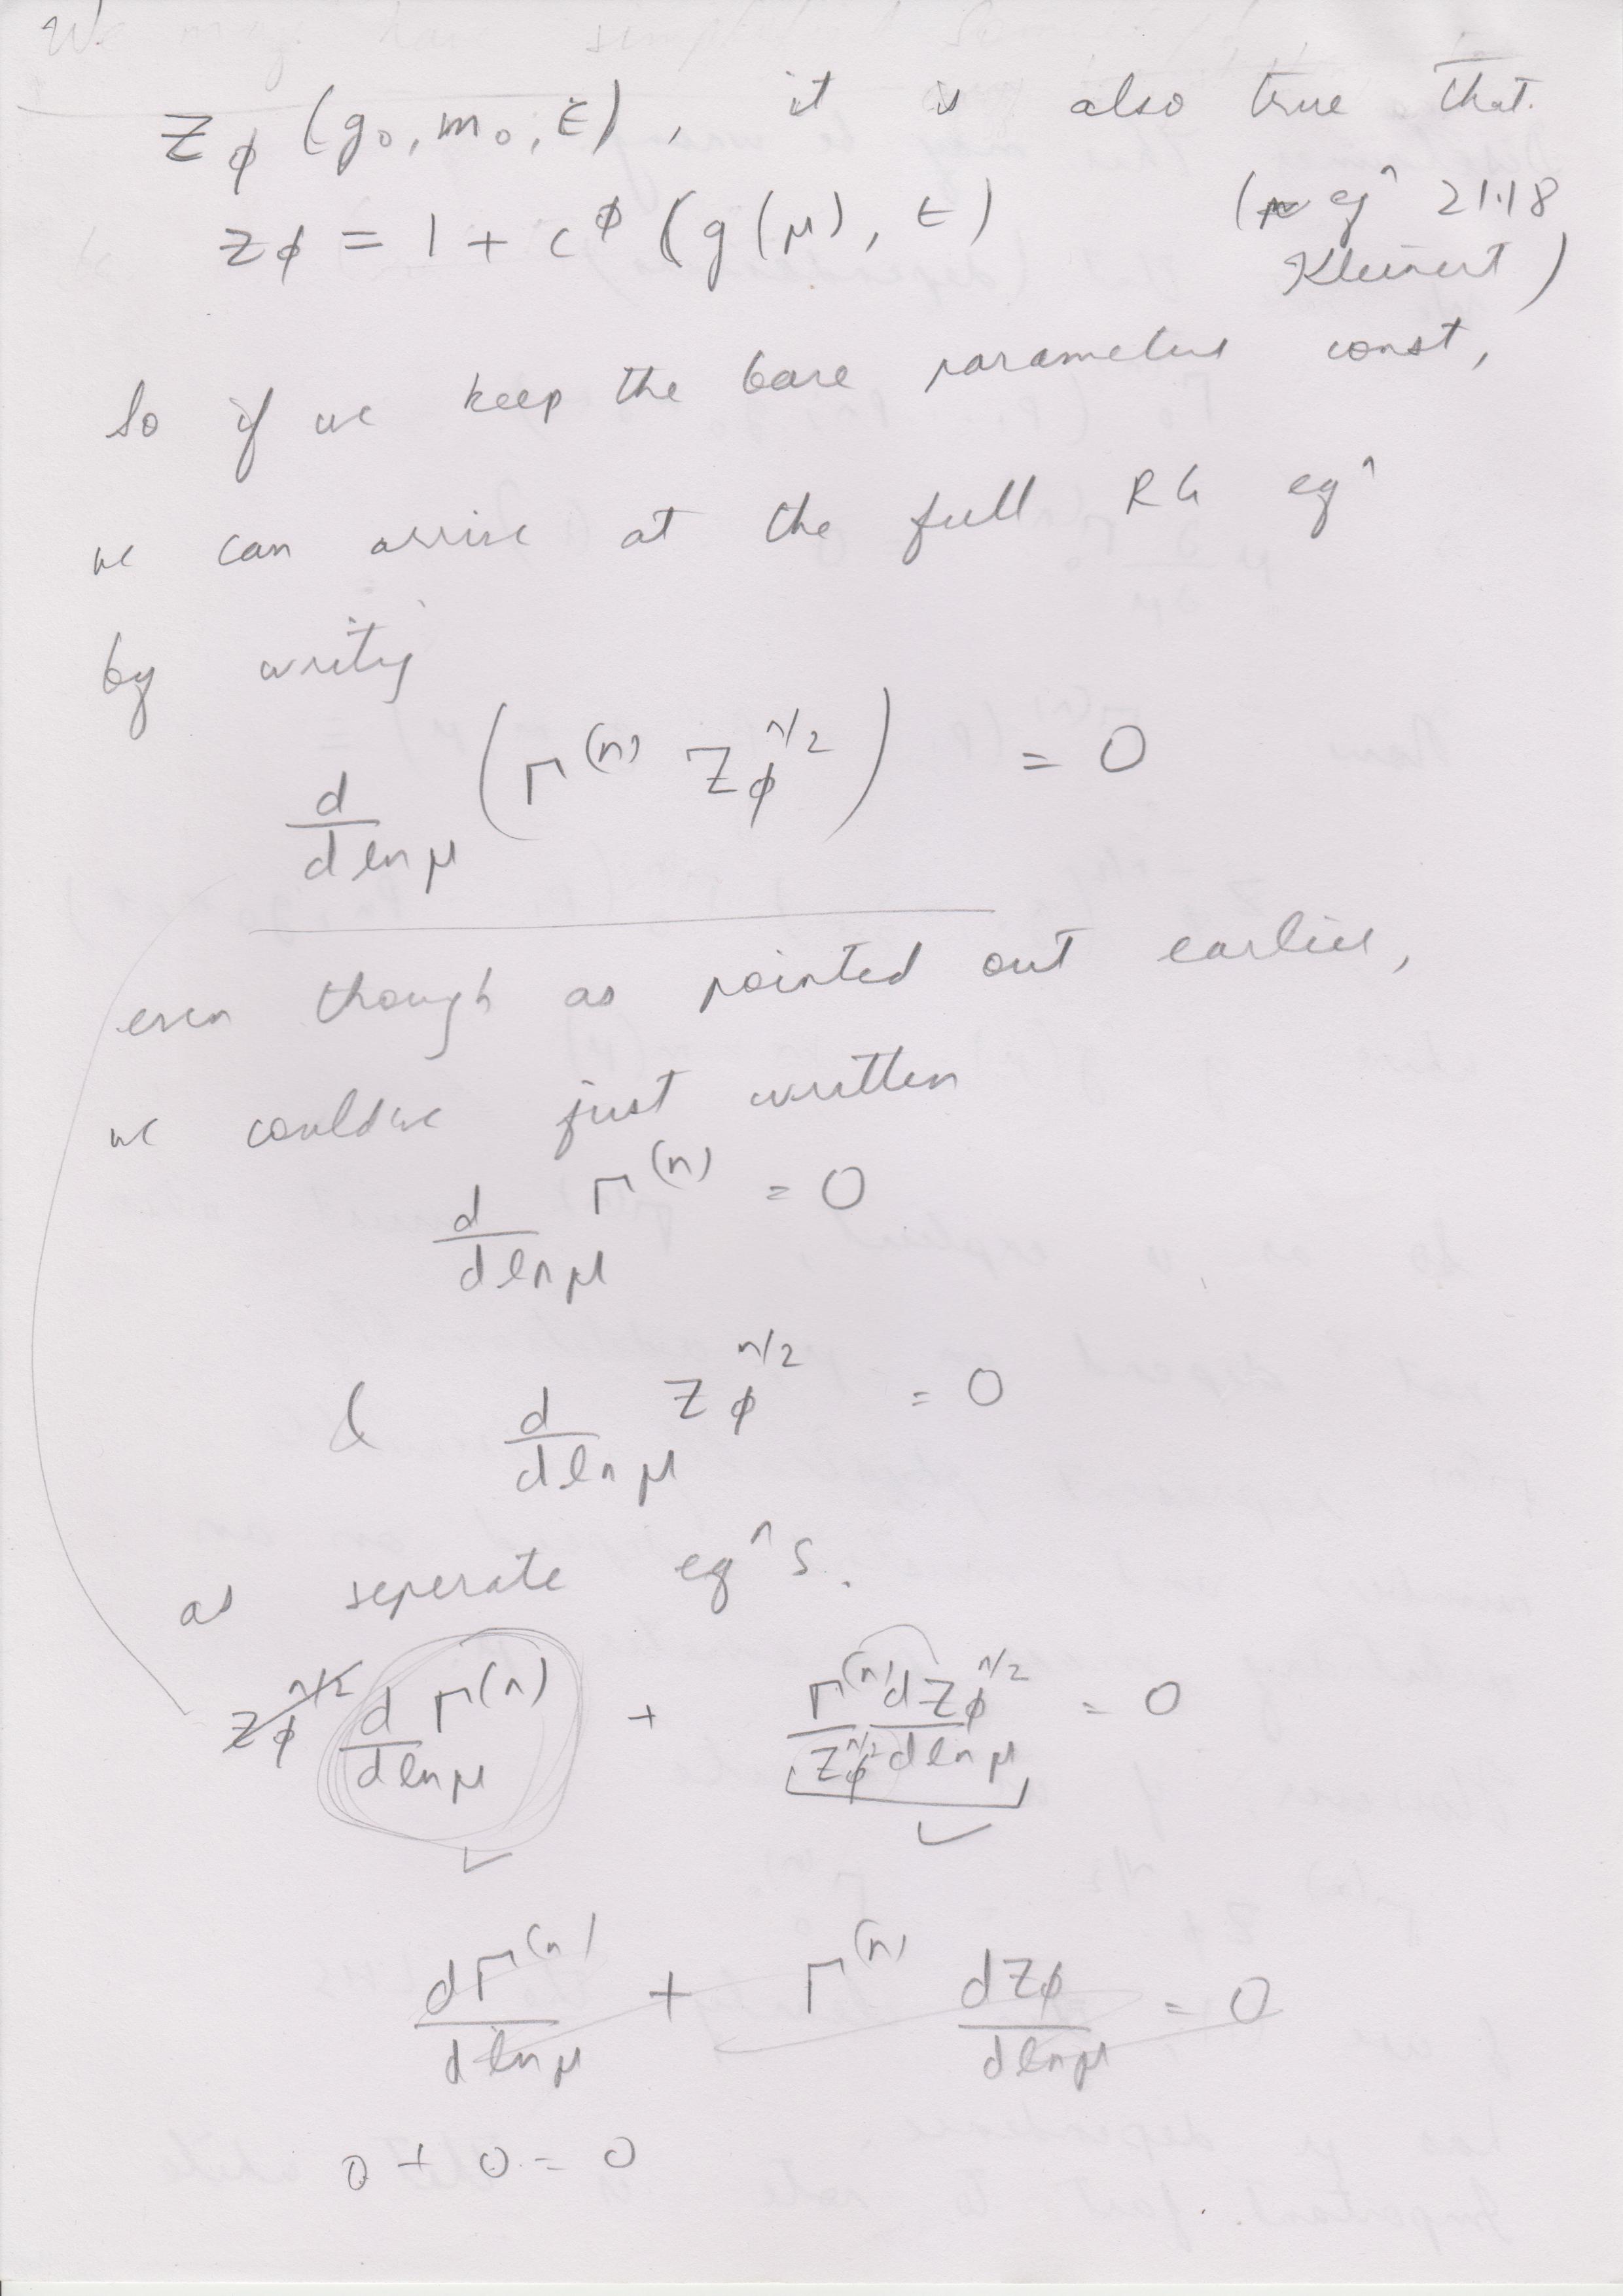 We may have simplified
Zϕ (g₀, m₀, ϵ), it is also true that.
zϕ = 1 + c^ϕ (g(μ), ϵ) (eqⁿ 21.18
Kleinert)
So if we keep the bare parameters const,
we can arrive at the full RG eqⁿ
by writing
d/d ln μ (Γ^(n) Zϕ^n/2) = 0
even though as pointed out earlier,
we could've just written
d/d ln μ Γ^(n) = 0
& d/d ln μ Zϕ^n/2 = 0
as seperate eqⁿs.
Zϕ^n/2 d/d ln μ Γ^(n) + Γ^(n)/Zϕ^n/2 dZϕ^n/2/d ln μ = 0
dΓ^(n)/d ln μ + Γ^(n) dZϕ/d ln μ = 0
0 + 0 = 0